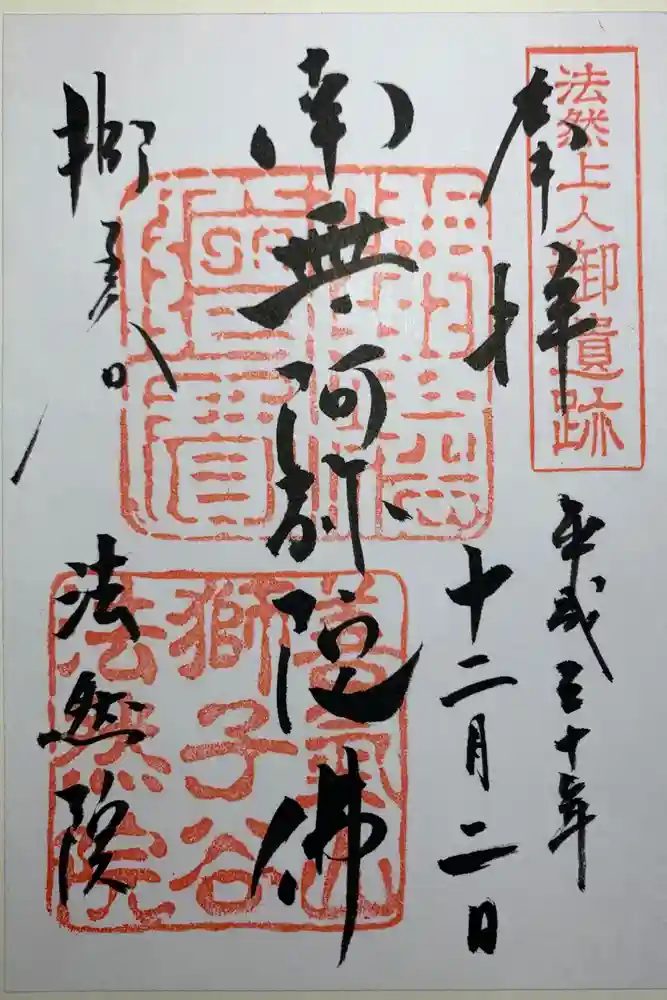 法然上人御遺跡
奉拝
平成三十年
十二月二日
南無阿弥陀佛
獅子谷
法然院
善氣山
獅子谷
法然院